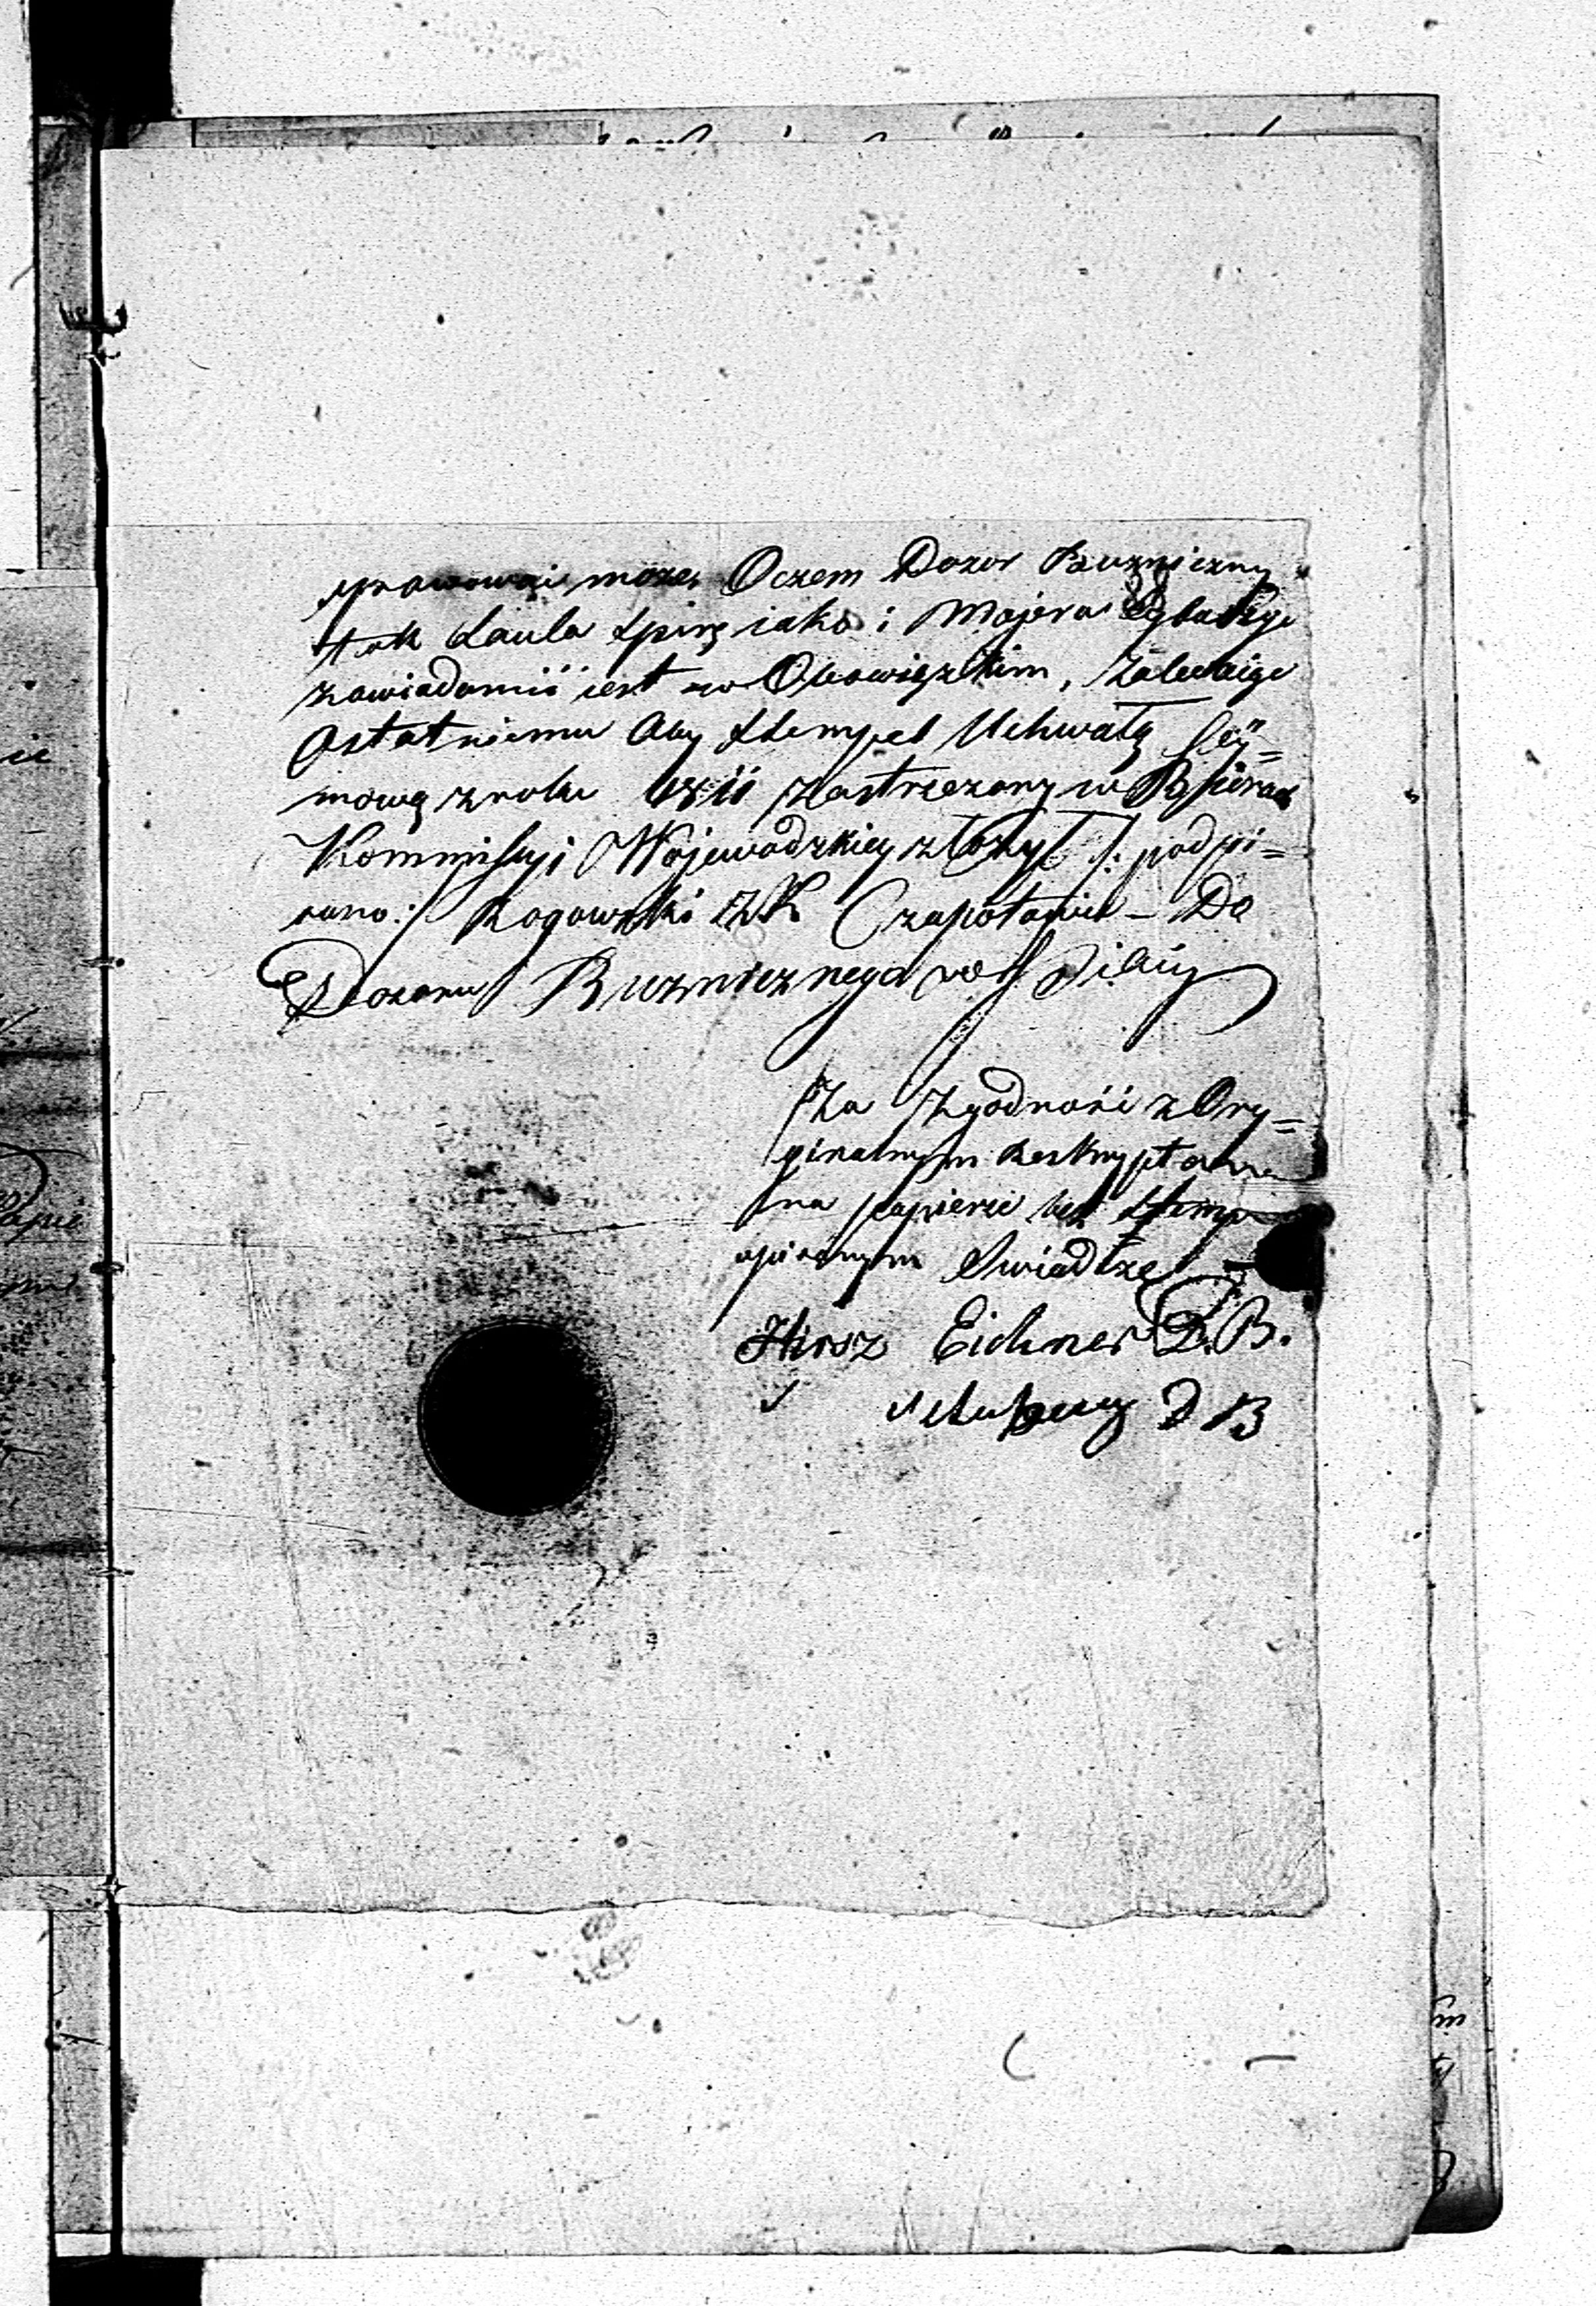 sprawować może, Oczem Dozor Buzniczny
tak Laula Spirę iako i Majera
zawiadomić iest w Obowiązkim, zalecaiąc
Ostatniemu Aby Stempel Uchwałą Sey=
mową z roku 1811 zastrzeżony w Biurze
Kommissyi Wojewodzkiey złożył /: podpi=
sano :/ Rogowski ZK Czapotowicz – Do
Dozoru Buznicznego w Pilicy
Za Zgodność z Ory=
ginalnym Reskryptem
na papierze bez Stempla
opisanym Swiadczę
Hirsz Eichner D.B.
D B